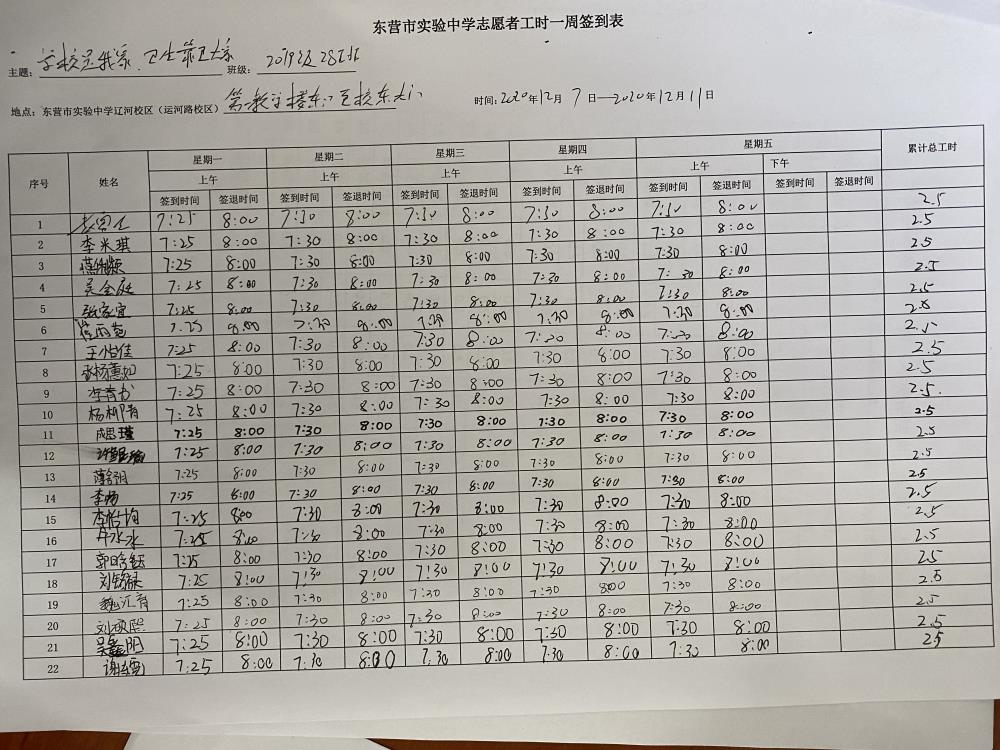 东营市实验中学志愿者工时一周签到表
主题：学校是我家、卫生靠大家 班级：2019级28班
地点：东营市实验中学辽河校区（运河路校区）第一教学楼东门至校东大门 时间：2020年12月7日—2020年12月11日
序号 姓名 星期一 星期二 星期三 星期四 星期五 累计总工时
上午 上午 上午 上午 上午 下午
签到时间 签退时间 签到时间 签退时间 签到时间 签退时间 签到时间 签退时间 签到时间 签退时间 签到时间 签退时间
1 7:25 8:00 7:30 8:00 7:30 8:00 7:30 8:00 7:30 8:00 2.5
2 李米琪 7:25 8:00 7:30 8:00 7:30 8:00 7:30 8:00 7:30 8:00 2.5
3 7:25 8:00 7:30 8:00 7:30 8:00 7:30 8:00 7:30 8:00 2.5
4 吴金庭 7:25 8:00 7:30 8:00 7:30 8:00 7:30 8:00 7:30 8:00 2.5
5 张家宜 7:25 8:00 7:30 8:00 7:30 8:00 7:30 8:00 7:30 8:00 2.5
6 7:25 8:00 7:30 8:00 7:30 8:00 7:30 8:00 7:30 8:00 2.5
7 王怡佳 7:25 8:00 7:30 8:00 7:30 8:00 7:20 8:00 7:20 8:00 2.5
8 7:25 8:00 7:30 8:00 7:30 8:00 7:30 8:00 7:30 8:00 2.5
9 7:25 8:00 7:30 8:00 7:30 8:00 7:30 8:00 7:30 8:00 2.5
10 杨柳青 7:25 8:00 7:30 8:00 7:30 8:00 7:30 8:00 7:30 8:00 2.5
11 成思瑾 7:25 8:00 7:30 8:00 7:30 8:00 7:30 8:00 7:30 8:00 2.5
12 7:25 8:00 7:30 8:00 7:30 8:00 7:30 8:00 7:30 8:00 2.5
13 7:25 8:00 7:30 8:00 7:30 8:00 7:30 8:00 7:30 8:00 2.5
14 李杨 7:25 8:00 7:30 8:00 7:30 8:00 7:30 8:00 7:30 8:00 2.5
15 李怡均 7:25 8:00 7:30 8:00 7:30 8:00 7:30 8:00 7:30 8:00 2.5
16 7:25 8:00 7:30 8:00 7:30 8:00 7:30 8:00 7:30 8:00 2.5
17 7:25 8:00 7:30 8:00 7:30 8:00 7:30 8:00 7:30 8:00 2.5
18 7:25 8:00 7:30 8:00 7:30 8:00 7:30 8:00 7:30 8:00 2.5
19 魏汇育 7:25 8:00 7:30 8:00 7:30 8:00 7:30 8:00 7:30 8:00 2.5
20 刘硕熙 7:25 8:00 7:30 8:00 7:30 8:00 7:30 8:00 7:30 8:00 2.5
21 7:25 8:00 7:30 8:00 7:30 8:00 7:30 8:00 7:30 8:00 2.5
22 7:25 8:00 7:30 8:00 7:30 8:00 7:30 8:00 7:30 8:00